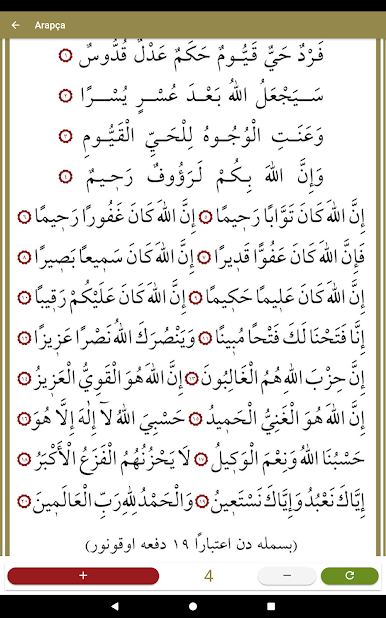 Arapça
فَرْدٌ حَيٌّ قَيُّومٌ حَكَمٌ عَدْلٌ قُدُّوسٌ
سَيَجْعَلُ اللهُ بَعْدَ عُسْرٍ يُسْرًا
وَعَنَتِ الْوُجُوهُ لِلْحَيِّ الْقَيُّومِ
وَإِنَّ اللهَ بِكُمْ لَرَؤُوفٌ رَحِيمٌ
إِنَّ اللهَ كَانَ تَوَّابًا رَحِيمًا ۝ إِنَّ اللهَ كَانَ غَفُورًا رَحِيمًا
فَإِنَّ اللهَ كَانَ عَفُوًّا قَدِيرًا ۝ إِنَّ اللهَ كَانَ سَمِيعًا بَصِيرًا
إِنَّ اللهَ كَانَ عَلِيمًا حَكِيمًا ۝ إِنَّ اللهَ كَانَ عَلَيْكُمْ رَقِيبًا
إِنَّا فَتَحْنَا لَكَ فَتْحًا مُبِينًا ۝ وَيَنْصُرَكَ اللهُ نَصْرًا عَزِيزًا
إِنَّ حِزْبَ اللهِ هُمُ الْغَالِبُونَ ۝ إِنَّ اللهَ هُوَ الْقَوِيُّ الْعَزِيزُ
إِنَّ اللهَ هُوَ الْغَنِيُّ الْحَمِيدُ ۝ حَسْبِيَ اللهُ لَآ إِلٰهَ إِلَّا هُوَ
حَسْبُنَا اللهُ وَنِعْمَ الْوَكِيلُ ۝ لَا يَحْزُنُهُمُ الْفَزَعُ الْأَكْبَرُ
إِيَّاكَ نَعْبُدُ وَإِيَّاكَ نَسْتَعِينُ ۝ وَالْحَمْدُ لِلهِ رَبِّ الْعَالَمِينَ
(بسمله دن اعتبارًا ١٩ دفعه اوقونور)
+ 4 −